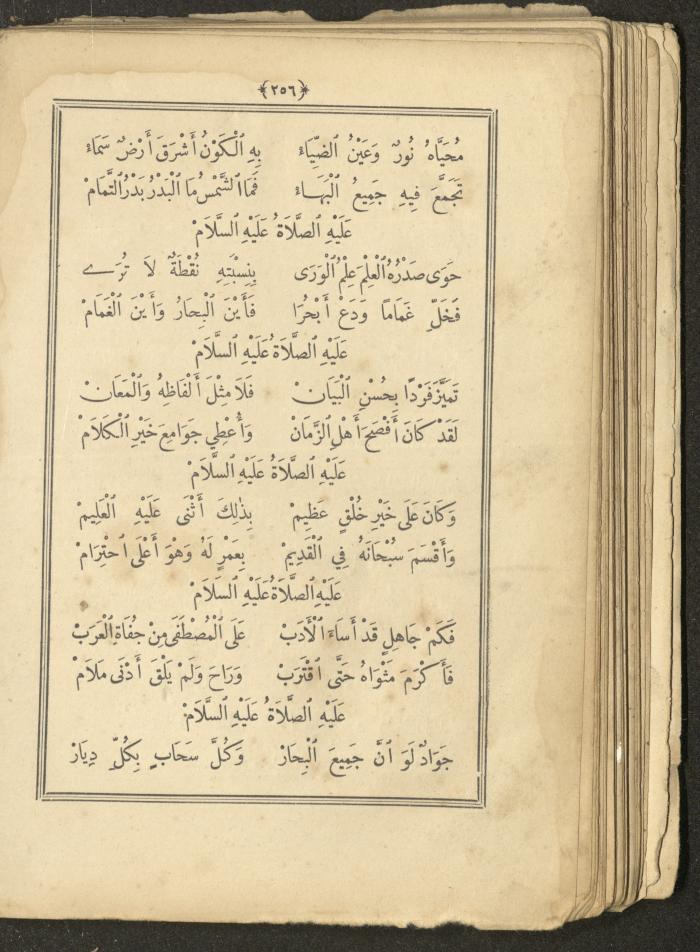 ﴿٢٥٦﴾
مُحَيَّاهُ نُورٌ وَعَيْنُ الضِّيَاءْ بِهِ الْكَوْنُ أَشْرَقَ أَرْضٌ سَمَاءْ
تَجَمَّعَ فِيهِ جَمِيعُ الْبَهَاءْ فَمَا الشَّمْسُ مَا الْبَدْرُ بَدْرُ التَّمَامْ
عَلَيْهِ الصَّلَاةُ عَلَيْهِ السَّلَامْ
حَوَى صَدْرُهُ الْعِلْمَ عِلْمُ الْوَرَى بِنِسْبَتِهِ نُقْطَةٌ لَا تُرَى
فَخَلِّ غَمَامًا وَدَعْ أَبْحُرَا فَأَيْنَ الْبِحَارُ وَأَيْنَ الْغَمَامْ
عَلَيْهِ الصَّلَاةُ عَلَيْهِ السَّلَامْ
تَمَيَّزَ فَرْدًا بِحُسْنِ الْبَيَانْ فَلَا مِثْلَ أَلْفَاظِهُ وَالْمَعَانْ
لَقَدْ كَانَ أَفْصَحَ أَهْلِ الزَّمَانْ وَأُعْطِي جَوَامِعَ خَيْرِ الْكَلَامْ
عَلَيْهِ الصَّلَاةُ عَلَيْهِ السَّلَامْ
وَكَانَ عَلَى خَيْرِ خُلْقٍ عَظِيمْ بِذٰلِكَ أَثْنَى عَلَيْهِ الْعَلِيمْ
وَأَقْسَمَ سُبْحَانَهُ فِي الْقَدِيمْ بِعَمْرٍ لَهُ وَهْوَ أَعْلَى احْتِرَامْ
عَلَيْهِ الصَّلَاةُ عَلَيْهِ السَّلَامْ
فَكَمْ جَاهِلٍ قَدْ أَسَاءَ الْأَدَبْ عَلَى الْمُصْطَفَى مِنْ جُفَاةِ الْعَرَبْ
فَأَكْرَمَ مَثْوَاهُ حَتَّى اقْتَرَبْ وَرَاحَ وَلَمْ يَلْقَ أَدْنَى مَلَامْ
عَلَيْهِ الصَّلَاةُ عَلَيْهِ السَّلَامْ
جَوَادٌ لَوَ انَّ جَمِيعَ الْبِحَارْ وَكُلَّ سَحَابٍ بِكُلِّ دِيَارْ